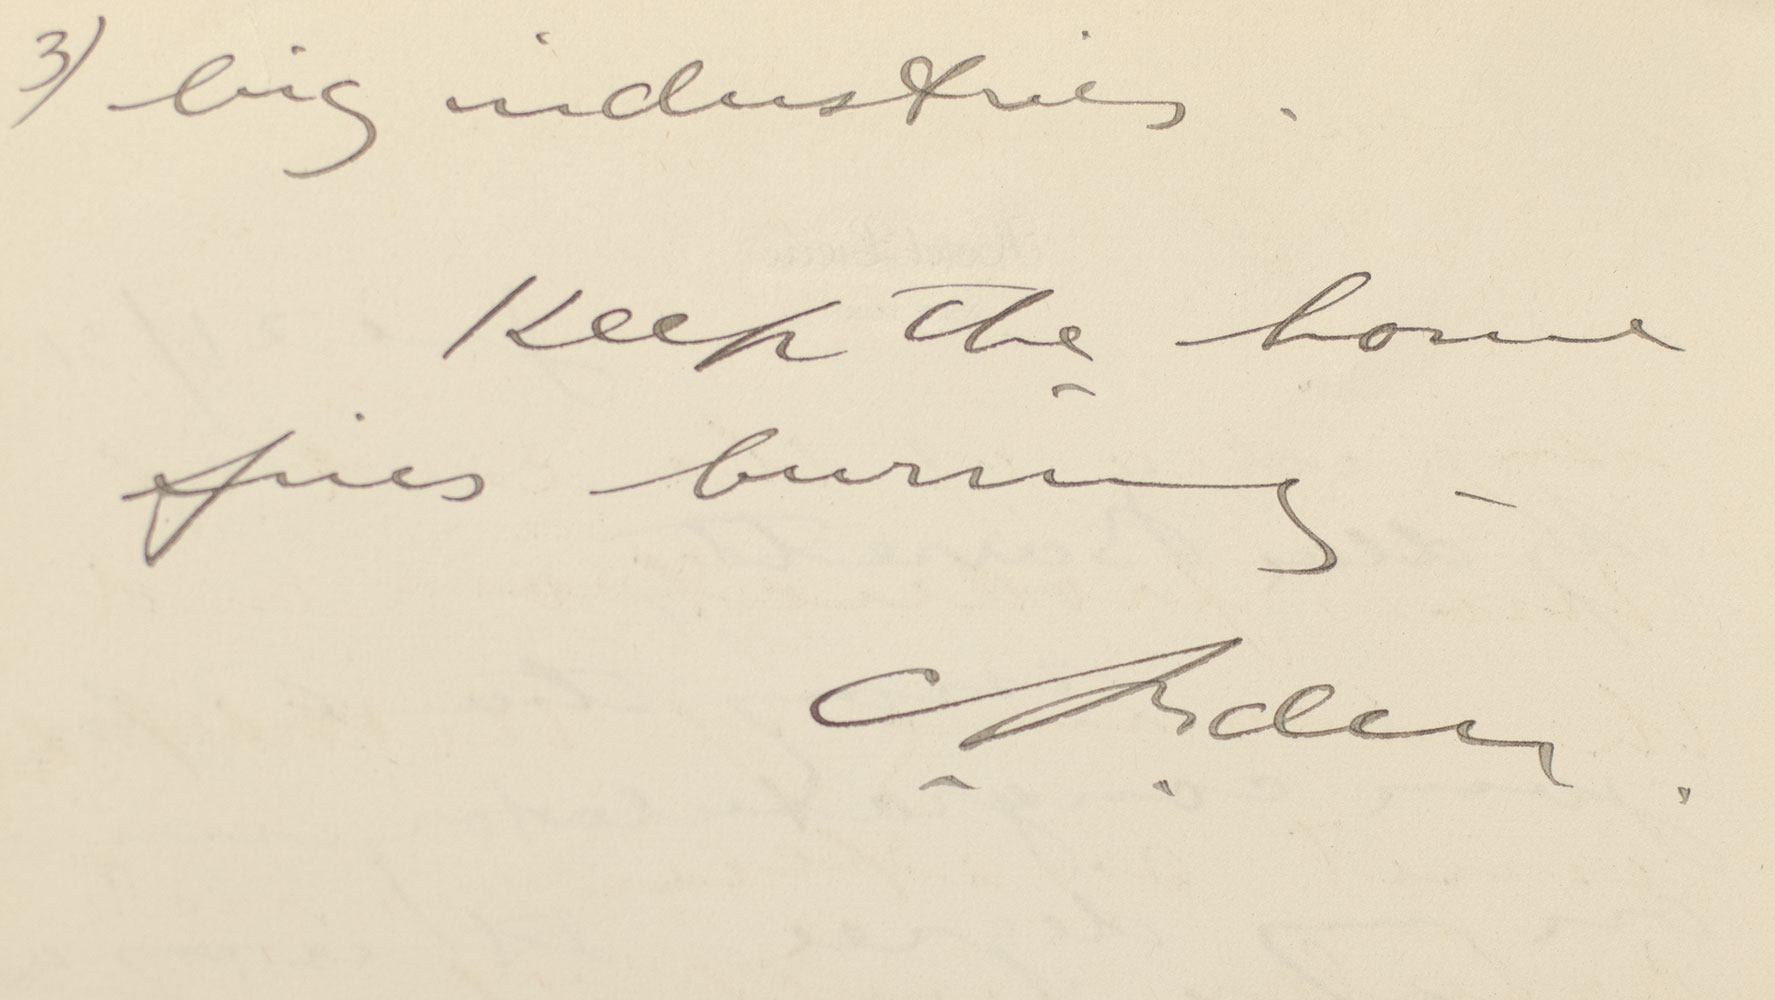 3) big industries.
Keep the home
fires burning –